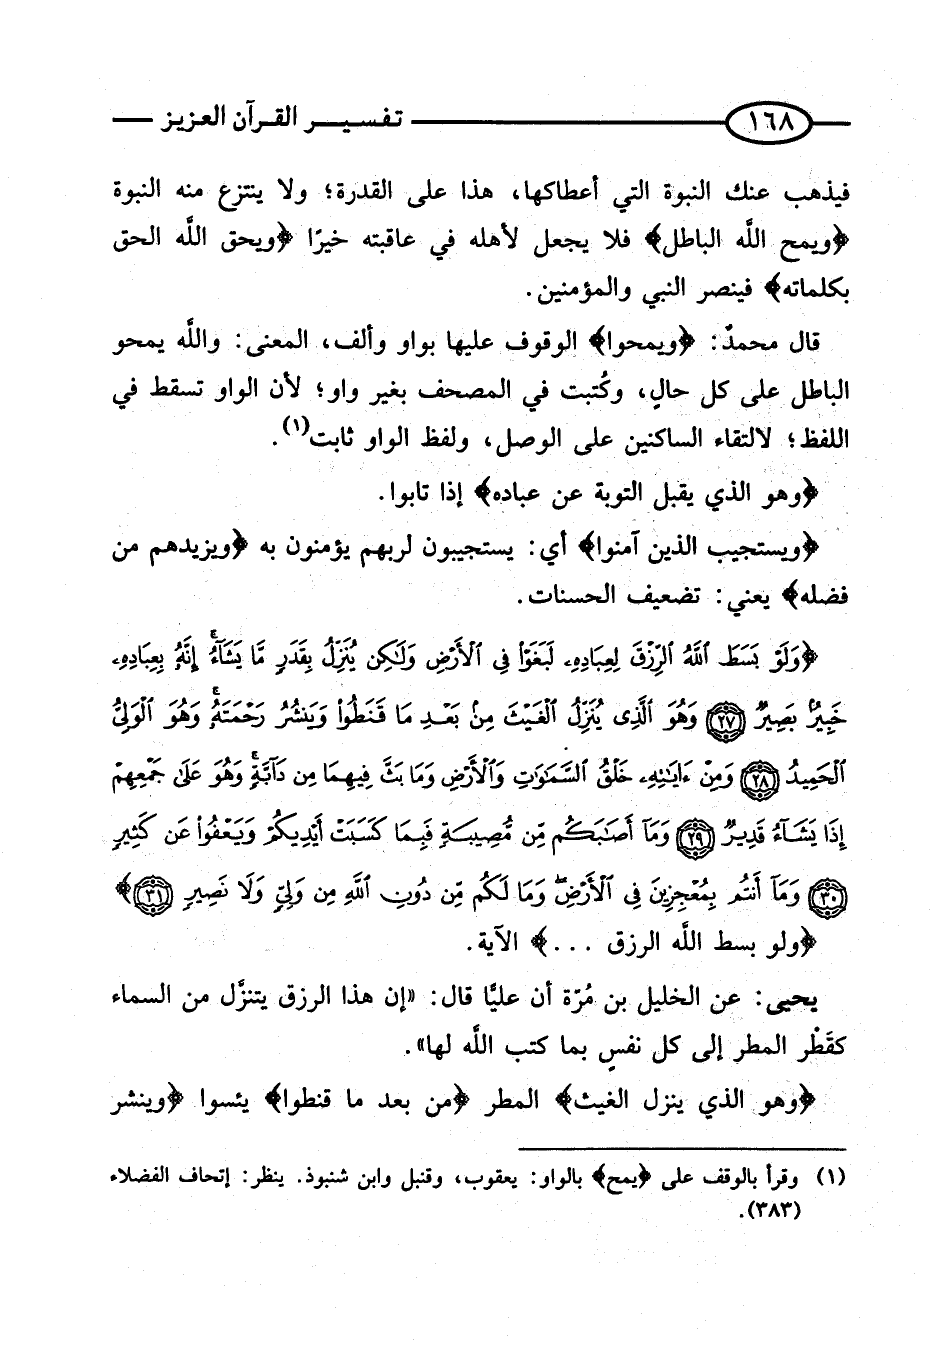 ١٦٨ تفسير القرآن العزيز
فيذهب عنك النبوة التي أعطاكها، هذا على القدرة؛ ولا ينتزع منه النبوة
﴿ويمح اللَّه الباطل﴾ فلا يجعل لأهله في عاقبته خيرًا ﴿ويحق اللَّه الحق
بكلماته﴾ فينصر النبي والمؤمنين.
قال محمدٌ: ﴿ويمحوا﴾ الوقوف عليها بواو وألف، المعنى: واللَّه يمحو
الباطل على كل حالٍ، وكُتبت في المصحف بغير واو؛ لأن الواو تسقط في
اللفظ؛ لالتقاء الساكنين على الوصل، ولفظ الواو ثابت(١).
﴿وهو الذي يقبل التوبة عن عباده﴾ إذا تابوا.
﴿ويستجيب الذين آمنوا﴾ أي: يستجيبون لربهم يؤمنون به ﴿ويزيدهم من
فضله﴾ يعني: تضعيف الحسنات.
﴿وَلَوْ بَسَطَ ٱللَّهُ ٱلرِّزْقَ لِعِبَادِهِۦ لَبَغَوْا۟ فِى ٱلْأَرْضِ وَلَٰكِن يُنَزِّلُ بِقَدَرٍ مَّا يَشَآءُ ۚ إِنَّهُۥ بِعِبَادِهِۦ
خَبِيرٌۢ بَصِيرٌ ﴿٢٧﴾ وَهُوَ ٱلَّذِى يُنَزِّلُ ٱلْغَيْثَ مِنۢ بَعْدِ مَا قَنَطُوا۟ وَيَنشُرُ رَحْمَتَهُۥ ۚ وَهُوَ ٱلْوَلِىُّ
ٱلْحَمِيدُ ﴿٢٨﴾ وَمِنْ ءَايَٰتِهِۦ خَلْقُ ٱلسَّمَٰوَٰتِ وَٱلْأَرْضِ وَمَا بَثَّ فِيهِمَا مِن دَآبَّةٍ ۚ وَهُوَ عَلَىٰ جَمْعِهِمْ
إِذَا يَشَآءُ قَدِيرٌ ﴿٢٩﴾ وَمَآ أَصَٰبَكُم مِّن مُّصِيبَةٍ فَبِمَا كَسَبَتْ أَيْدِيكُمْ وَيَعْفُوا۟ عَن كَثِيرٍ
﴿٣٠﴾ وَمَآ أَنتُم بِمُعْجِزِينَ فِى ٱلْأَرْضِ ۖ وَمَا لَكُم مِّن دُونِ ٱللَّهِ مِن وَلِىٍّ وَلَا نَصِيرٍ ﴿٣١﴾﴾
﴿ولو بسط اللَّه الرزق ...﴾ الآية.
يحيى: عن الخليل بن مُرّة أن عليًّا قال: «إن هذا الرزق يتنزَّل من السماء
كقَطْر المطر إلى كل نفسٍ بما كتب اللَّه لها».
﴿وهو الذي ينزل الغيث﴾ المطر ﴿من بعد ما قنطوا﴾ يئسوا ﴿وينشر
(١) وقرأ بالوقف على ﴿يمح﴾ بالواو: يعقوب، وقنبل وابن شنبوذ. ينظر: إتحاف الفضلاء
(٣٨٣).